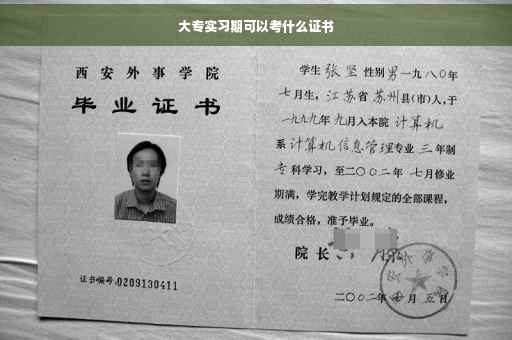 大专实习期可以考什么证书
西安外事学院
毕业证书
证书编号:0209130411
学生 张坚 性别 男 一九八〇年
七月生，江苏省 苏州县(市)人，于
一九九九年 九月入本院 计算机
系 计算机信息管理专业 三 年制
专科学习，至二〇〇二年 七月修业
期满，学完教学计划规定的全部课程，
成绩合格，准予毕业。
院长
二〇〇二年 月 五日